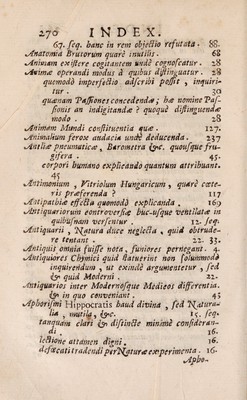 270 INDEX.
67. seq. hanc in rem objectio refutata. 88.
Anatomia Brutorum quare inutilis. 68
Animam existere cogitantem unde cognoscatur. 28
Animæ operandi modus à quibus distinguatur. 28
quomodo imperfectio adscribi possit, inquiri-
tur. 30
quænam Passiones concedendæ, hæ nomine Pas-
sionis an indigitandæ? quoque distinguendæ
modo. 28
Animam Mundi constituentia quæ. 127.
Animalium ferox audacia unde deducenda. 237
Antliæ pneumaticæ, Barometra &c. quousque fru-
gifera. 45.
corpori humano explicando quantum attribuant.
45
Antimonium, Vitriolum Hungaricum, quare cæte-
ris præferenda? 117
Antipathiæ effectu quomodò explicanda. 169
Antiquariorum controversiæ huc-usque ventilatæ in
quibusnam versentur. 12. seq.
Antiquarii, Natura duce neglecta, quid obtrude-
re tentant. 22. 33.
Antiquis omnia fuisse nota, juniores pernegant. 4.
Antiquiores Chymici quid statuerint non solummodo
inquirendum, ut exinde argumentetur, sed
& quid Moderni. 22.
Antiquarios inter Modernosque Medicos differentia.
& in quo conveniant. 43
Aphorismi Hippocratis haud divina, sed Natura-
lia, mutila, &c. 15. seq.
tanquam clari & distincte minimè consideran-
di. 16.
lectione attamen digni. 16.
defæcati tradendi per Naturæ experimenta. 16.
Apho-